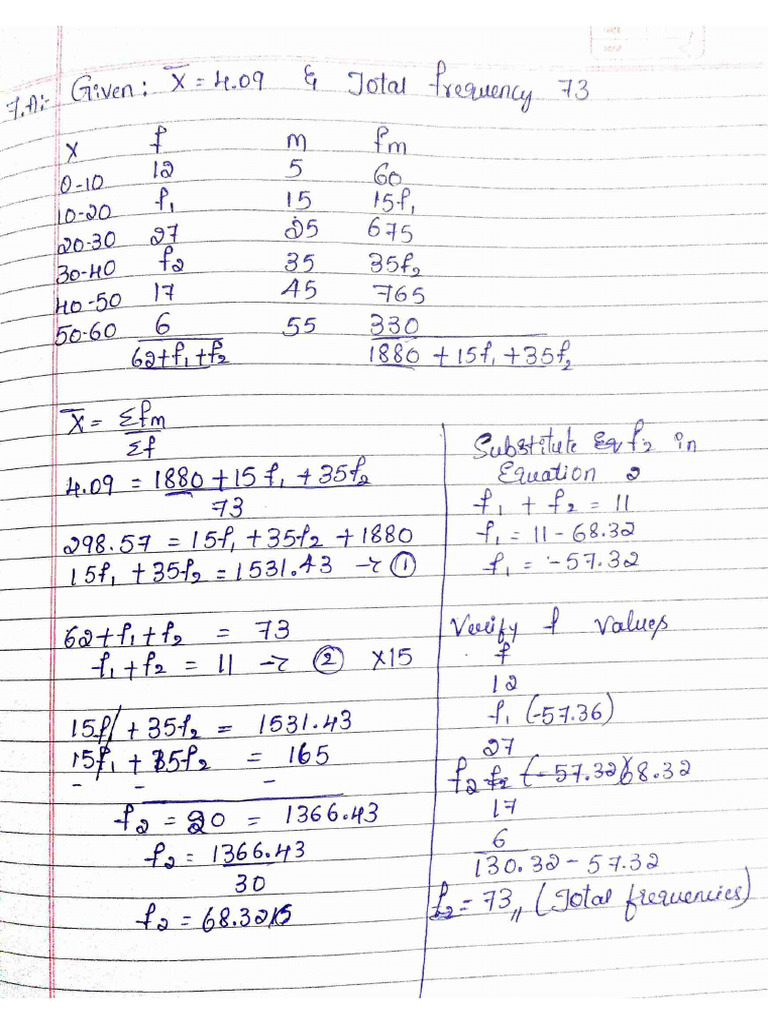 7.A:- Given: X̅ = 4.09 & Total frequency 73
X f m fm
0-10 12 5 60
10-20 f₁ 15 15f₁
20-30 27 25 675
30-40 f₂ 35 35f₂
40-50 17 45 765
50-60 6 55 330
62+f₁+f₂ 1880 + 15f₁ + 35f₂
X̅ = Σfm
Σf
4.09 = 1880 + 15f₁ + 35f₂
73
298.57 = 15f₁ + 35f₂ + 1880
15f₁ + 35f₂ = 1531.43 → ①
62+f₁+f₂ = 73
f₁+f₂ = 11 → ② ×15
15f₁ + 35f₂ = 1531.43
15f₁ + 15f₂ = 165
- - -
f₂ = 20 = 1366.43
f₂ = 1366.43
30
f₂ = 68.3215
Substitute Eq f₂ in
Equation 2
f₁ + f₂ = 11
f₁ = 11 - 68.32
f₁ = -57.32
Verify f values
f
12
f₁ (-57.36)
27
f₂ f₂ (-57.32)(68.32
17
6
130.32 - 57.32
f₂ = 73,, (Total frequencies)